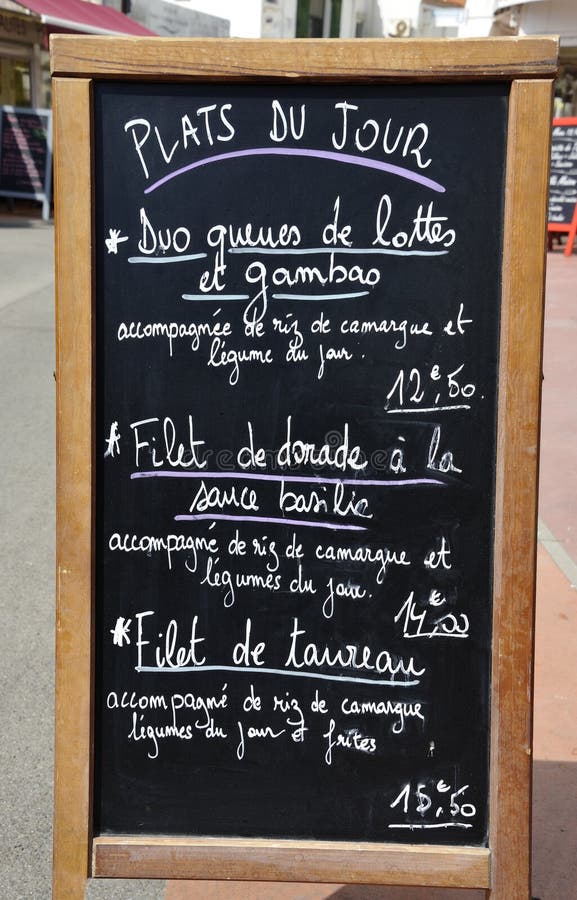 PLATS DU JOUR
* Duo queues de lottes
et gambas
accompagnée de riz de camargue et
légume du jour.
12€,50
* Filet de dorade à la
sauce basilic
accompagné de riz de camargue et
légumes du jour.
14€,00
* Filet de taureau
accompagné de riz de camargue
légumes du jour et frites
15€,50